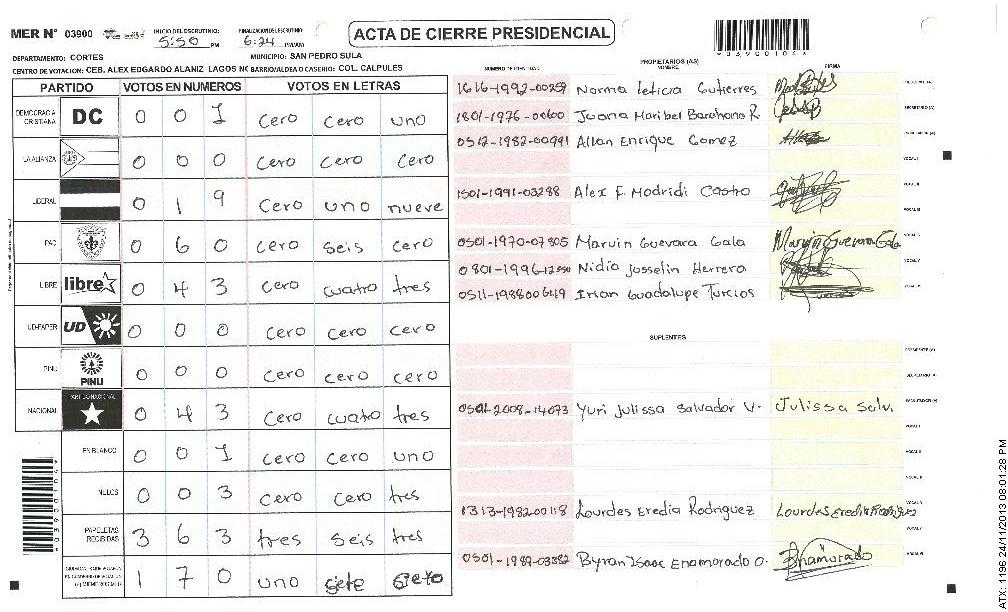 MER N° 03900 INICIO DEL ESCRUTINIO: 5:50 PM FINALIZACION ESCRUTINIO: 6:24 PM/AM ACTA DE CIERRE PRESIDENCIAL
*03900104*
DEPARTAMENTO: CORTES MUNICIPIO: SAN PEDRO SULA
CENTRO DE VOTACION: CEB. ALEX EDGARDO ALANIZ LAGOS NC BARRIO/ALDEA O CASERIO: COL. CALPULES
PARTIDO VOTOS EN NUMEROS VOTOS EN LETRAS
DEMOCRACIA CRISTIANA DC 0 0 1 cero cero uno
LA ALIANZA 0 0 0 cero cero cero
LIBERAL 0 1 9 cero uno nueve
PAC 0 6 0 cero seis cero
LIBRE libre 0 4 3 cero cuatro tres
UD-FAPER UD 0 0 0 cero cero cero
PINU PINU 0 0 0 cero cero cero
NACIONAL PARTIDO NACIONAL 0 4 3 cero cuatro tres
EN BLANCO 0 0 1 cero cero uno
NULOS 0 0 3 cero cero tres
PAPELETAS RECIBIDAS 3 6 3 tres seis tres
1 7 0 uno siete cero
PROPIETARIOS (AS)
NUMERO DE IDENTIDAD NOMBRE FIRMA
1616-1992-00259 Norma leticia Gutierres
1801-1976-00600 Juana Maribel Barahona R
0512-1982-00991 Allan Enrique Gomez
1501-1991-03288 Alex F. Madridi Castro
0501-1970-07805 Marvin Guevara Gala Marvin Guevara Gala
0801-1996-12550 Nidia Josselin Herrera
0511-198800649 Irian Guadalupe Turcios
SUPLENTES
0501-2008-14073 Yuri Julissa Salvador V. Julissa Salv.
1313-1982-00118 Lourdes Eredia Rodriguez Lourdes Eredia Rodriguez
0501-1989-03382 Byran Isaac Enamorado O. Enamorado
*03900104*
ATX: 1196 24/11/2013 08:01:28 PM